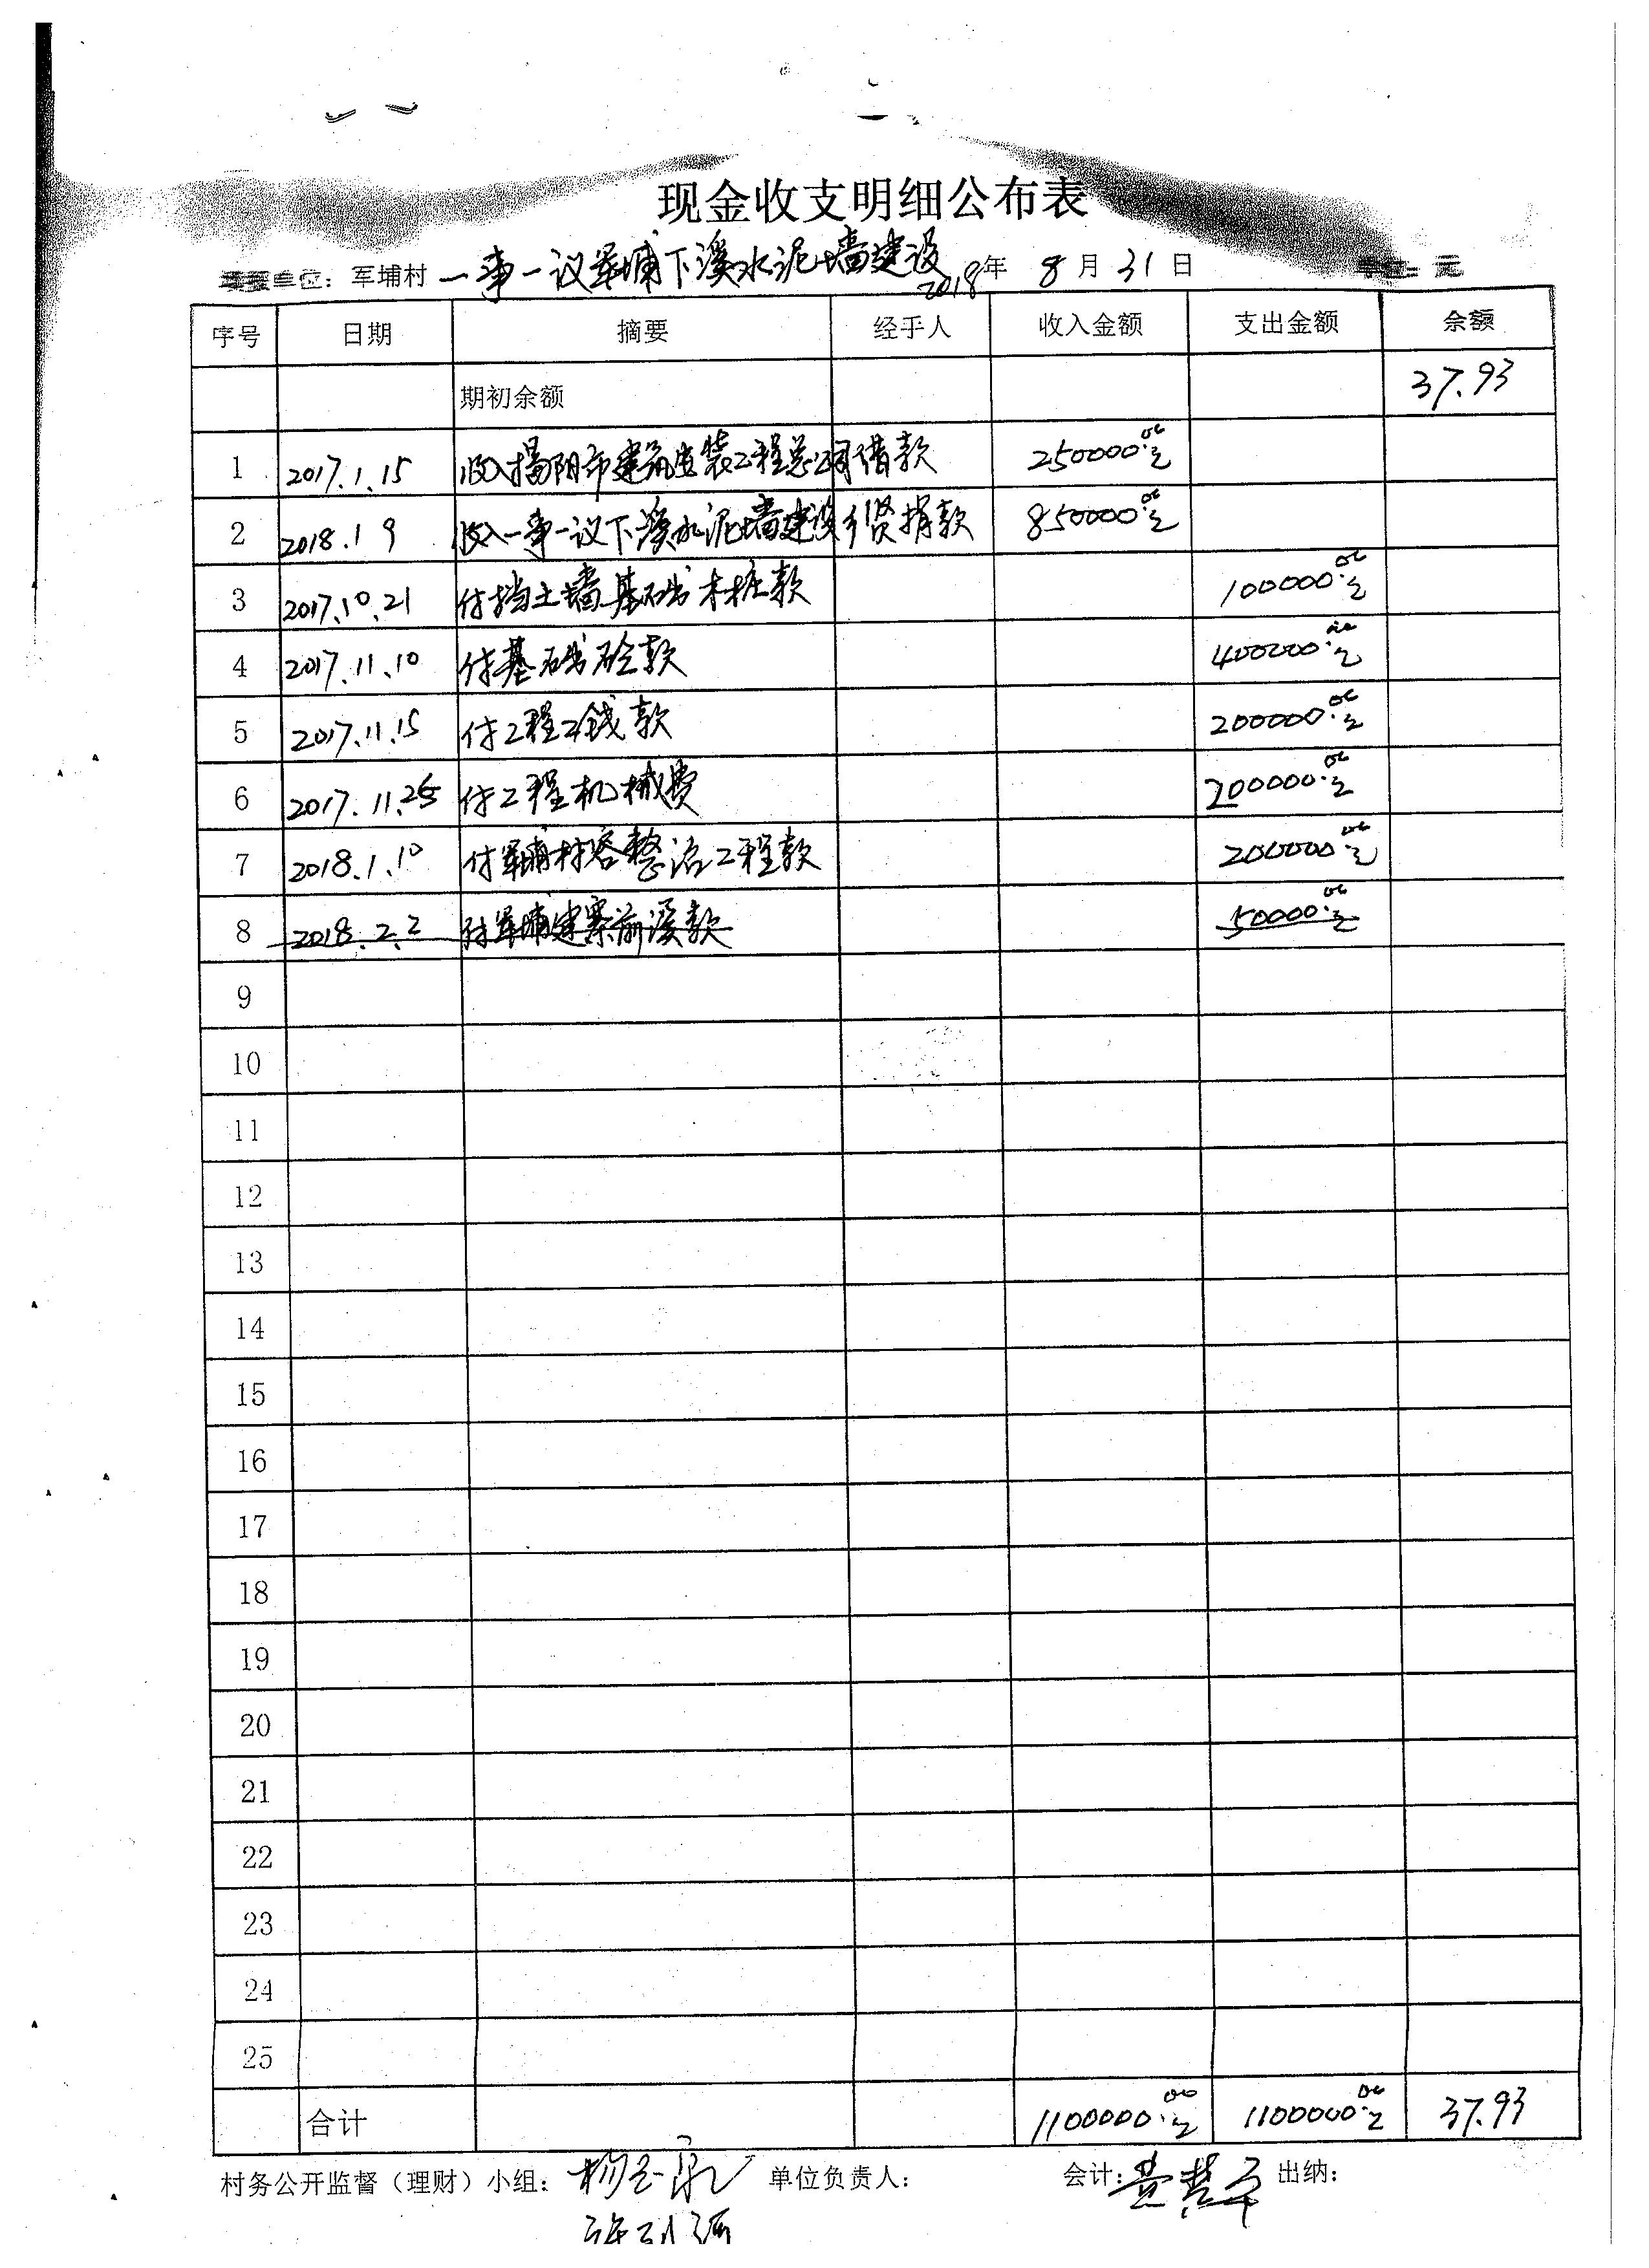 现金收支明细公布表
单位：军埔村 一事一议军埔下溪水泥墙建设 2018年 8月 31日 单位：元
序号 日期 摘要 经手人 收入金额 支出金额 余额
期初余额 37.93
1 2017.1.15 收入揭阳市建筑安装工程总公司借款 250000.00元
2 2018.1 9 收入一事一议下溪水泥墙建设乡贤捐款 850000.00元
3 2017.10.21 付挡土墙基础木桩款 100000.00元
4 2017.11.10 付基础砼款 400000.00元
5 2017.11.15 付工程工钱款 200000.00元
6 2017.11.25 付工程机械费 200000.00元
7 2018.1.10 付军埔村容整治工程款 200000.00元
8 2018.2.2 付军埔建寨前溪款 50000.00元
9
10
11
12
13
14
15
16
17
18
19
20
21
22
23
24
25
合计 1100000.00元 1100000.00元 37.93
村务公开监督（理财）小组： 单位负责人： 会计： 出纳：